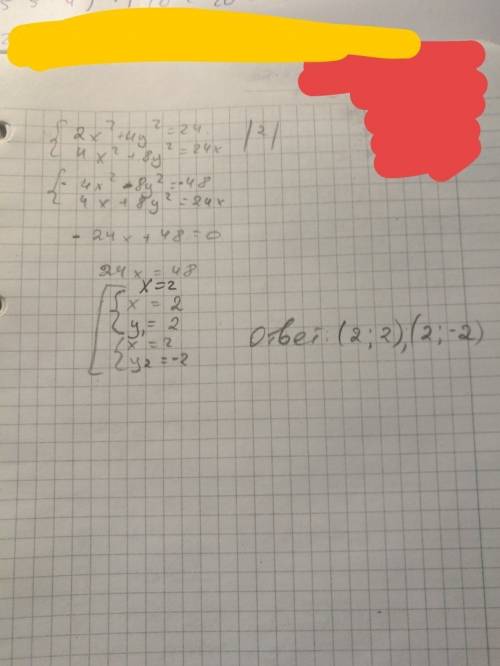 { 2x² + 4y² = 24 |2|
4x² + 8y² = 24x
{ - 4x² - 8y² = -48
4x + 8y² = 24x
- 24x + 48 = 0
24x = 48
x = 2
[ { x = 2
y₁ = 2
{ x = 2
y₂ = -2
Ответ: (2; 2), (2; -2)